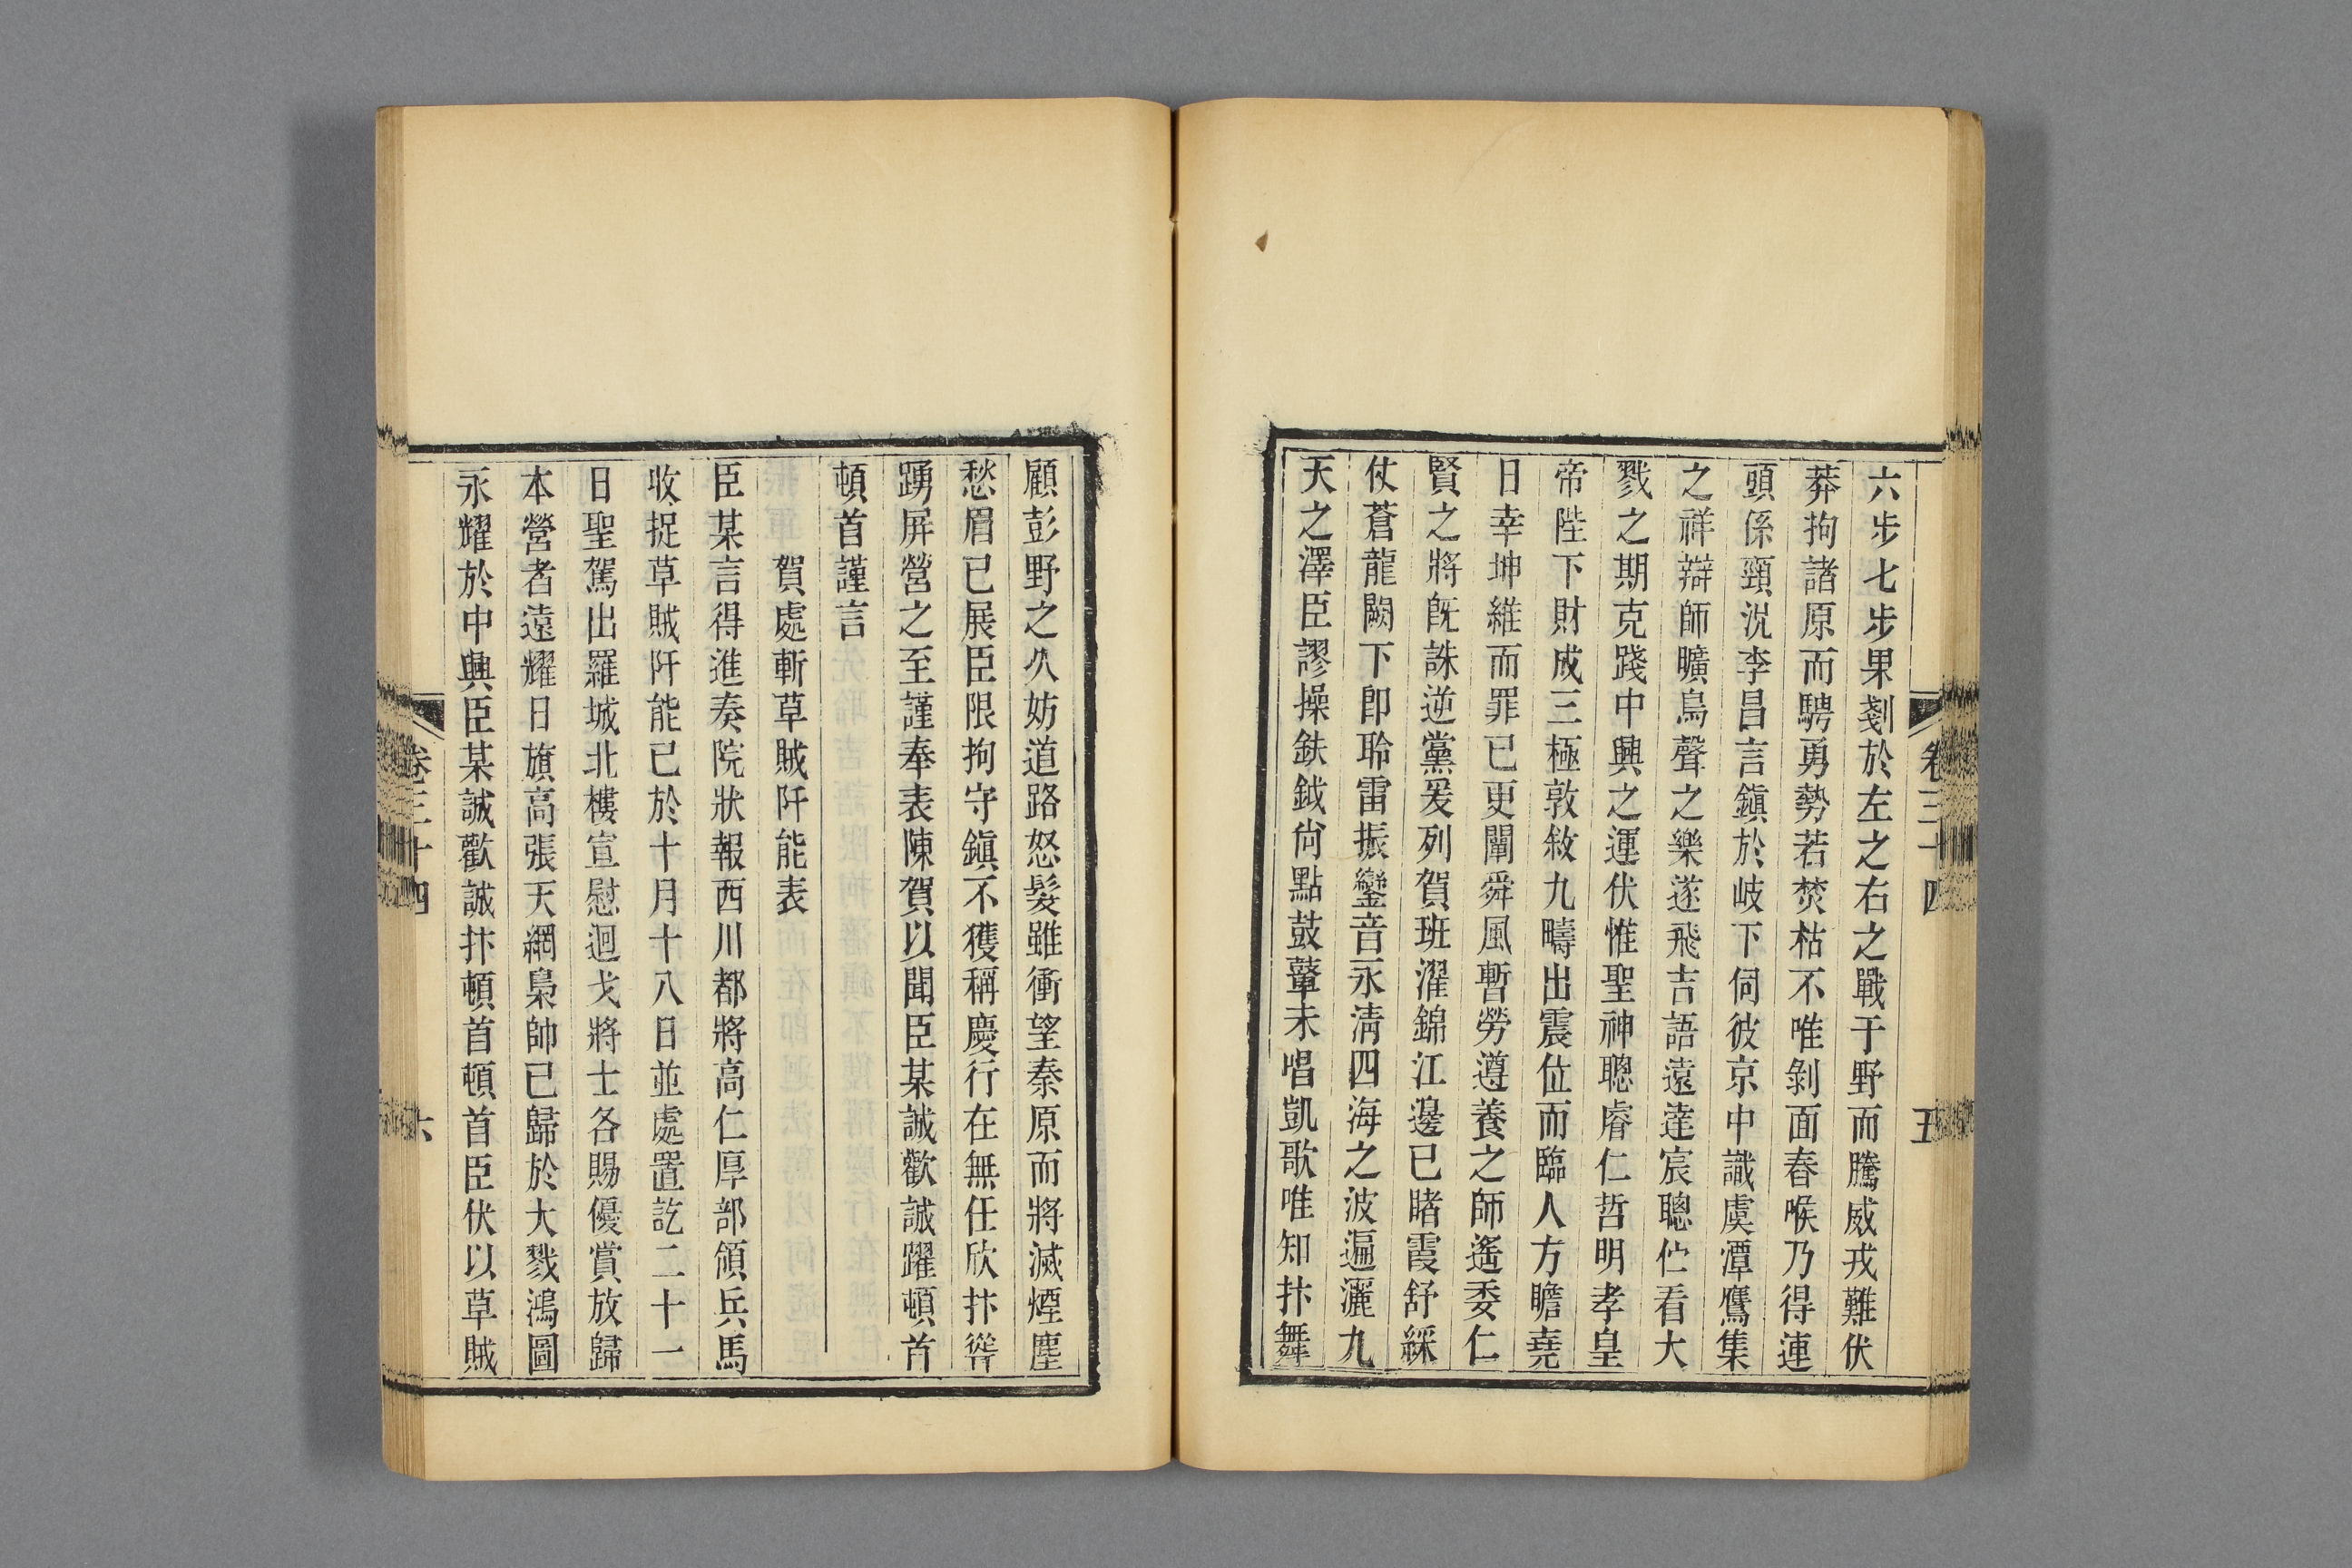 六步七步果剗於左之右之戰于野而騰威戎難伏
莽拘諸原而騁勇勢若焚枯不唯剝面舂喉乃得連
頭係頸況李昌言鎭於岐下伺彼京中識虞潭鷹集
之祥辯師曠烏聲之樂遂飛吉語遠達宸聰伫看大
戮之期克踐中興之運伏惟聖神聰睿仁哲明孝皇
帝陛下財成三極敦敘九疇出震位而臨人方瞻堯
日幸坤維而罪已更闡舜風暫勞遵養之師遙委仁
賢之將旣誅逆黨爰列賀班濯錦江邊已睹霞舒綵
仗蒼龍闕下卽聆雷振鑾音永淸四海之波遍灑九
天之澤臣謬操鈇鉞尙點鼓鼙未唱凱歌唯知抃舞
卷三十四
五
顧彭野之久妨道路怒髮雖衝望秦原而將滅煙塵
愁眉已展臣限拘守鎭不獲稱慶行在無任欣抃聳
踴屏營之至謹奉表陳賀以聞臣某誠歡誠躍頓首
頓首謹言
賀處斬草賊阡能表
臣某言得進奏院狀報西川都將高仁厚部領兵馬
收捉草賊阡能已於十月十八日並處置訖二十一
日聖駕出羅城北樓宣慰迴戈將士各賜優賞放歸
本營者遠耀日旗高張天網梟帥已歸於大戮鴻圖
永耀於中興臣某誠歡誠抃頓首頓首臣伏以草賊
卷三十四
六